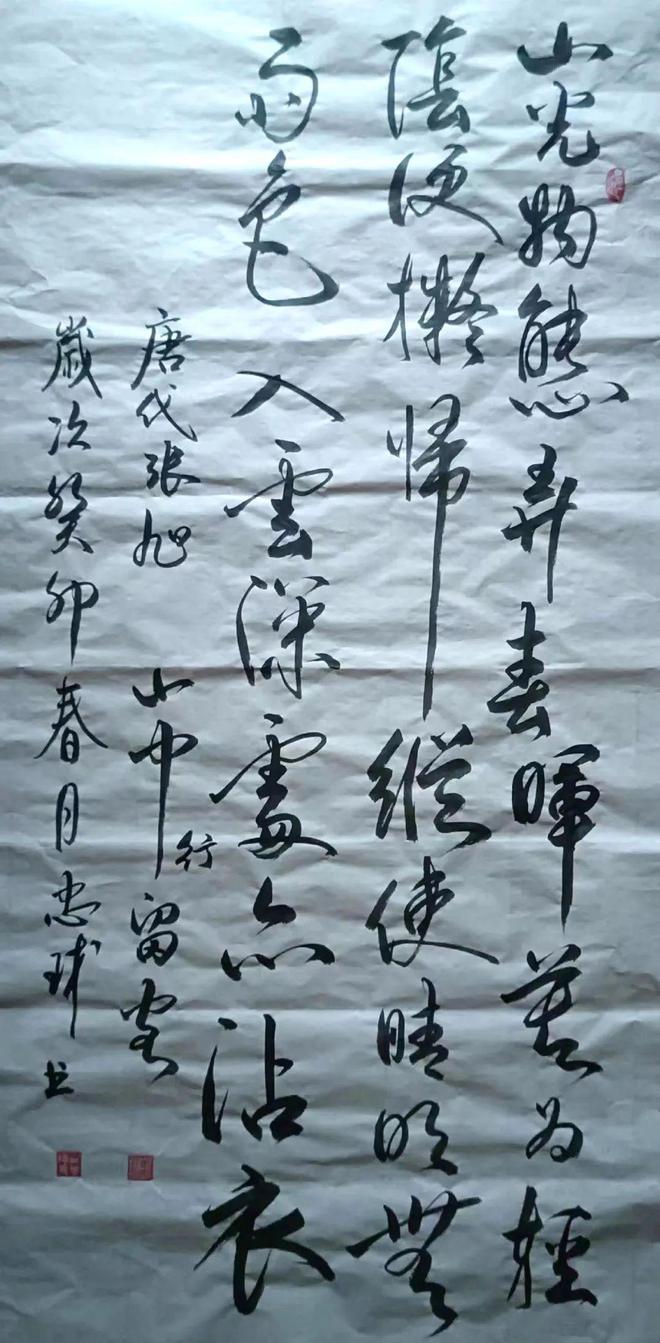 山光物態弄春暉莫为輕
陰便擬歸縱使晴明無
雨色入雲深處亦沾衣
唐代張旭 山中行留客
歲次癸卯春月忠球书